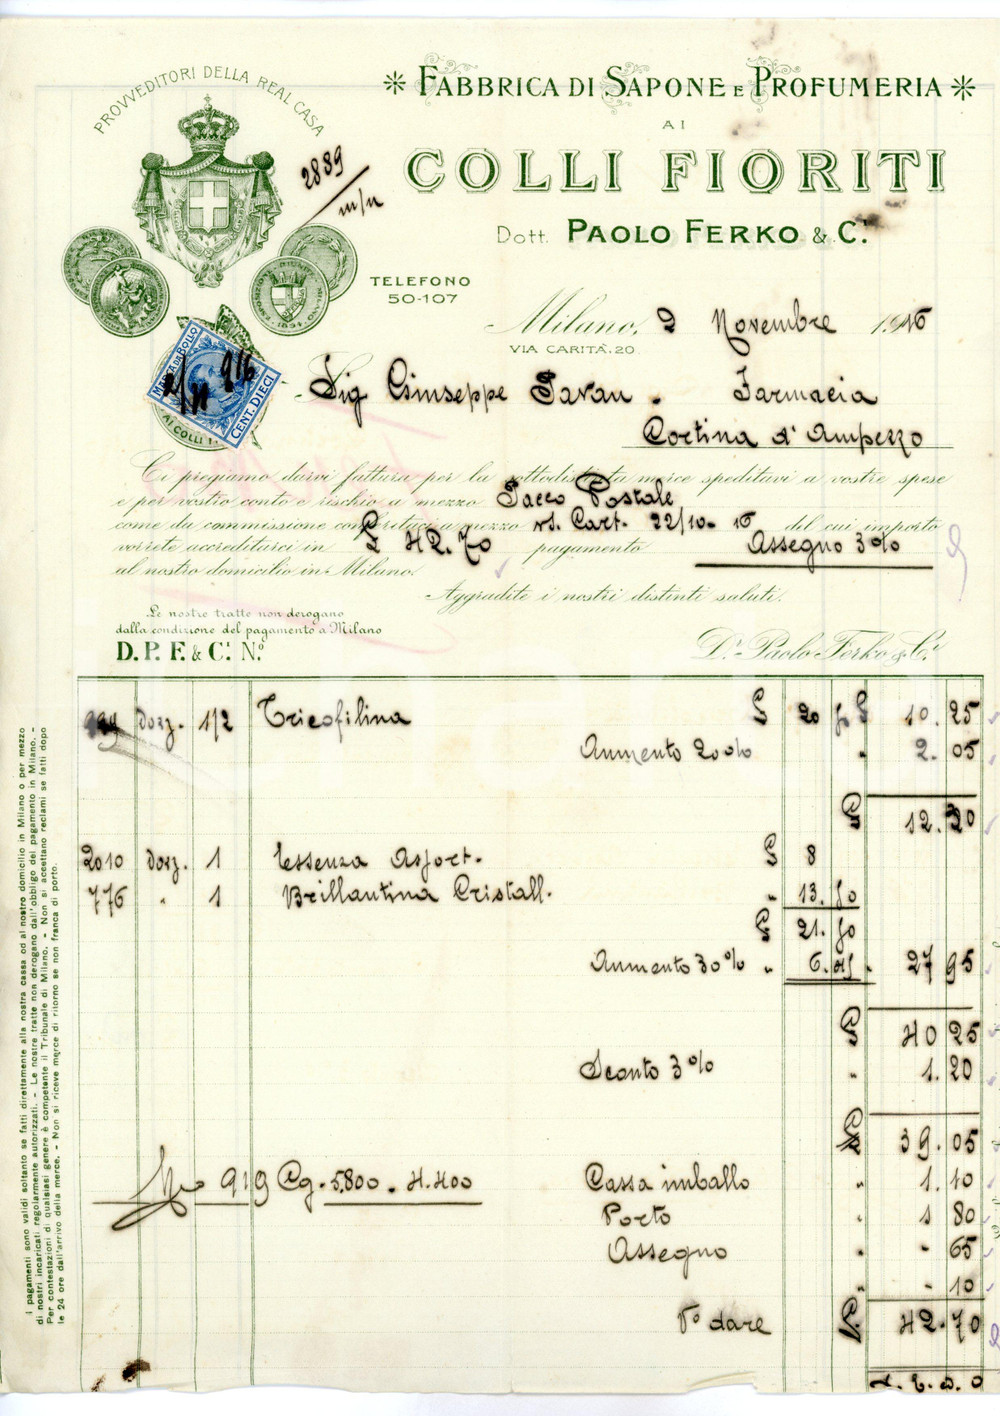 PROVVEDITORI DELLA REAL CASA
* FABBRICA DI SAPONE E PROFUMERIA *
AI
COLLI FIORITI
Dott. PAOLO FERKO & C.i
2889
m/n
TELEFONO
50-107
Milano, 2 Novembre 1916
VIA CARITÀ, 20
MARCA DA BOLLO
CENT. DIECI
2/11 916
AI COLLI
Sig Giuseppe Pavan . Farmacia
Cortina d'Ampezzo
Ci pregiamo darvi fattura per la sottodistinta merce speditavi a vostre spese
e per vostro conto e rischio a mezzo Pacco Postale
come da commissione conferitaci a mezzo vs. Cart. 22/10-16 del cui importo
vorrete accreditarci in £ 42.70 pagamento Assegno 3%
al nostro domicilio in Milano.
Aggradite i nostri distinti saluti.
Le nostre tratte non derogano
dalla condizione del pagamento a Milano
D. P. F. & C.i N.o
D.r Paolo Ferko & C.i
999 dozz. 1/2 Tricofilina £ 20 50 £ 10.25
Aumento 20% " 2.05
£ 12.30
2010 dozz. 1 Essenza Assort. £ 8
776 " 1 Brillantina Cristall. " 13.50
£ 21.50
Aumento 30% " 6.45 . 27 95
£ 40 25
Sconto 3% " 1.20
£ 39.05
919 Cg. 5.800 - 4.400 Cassa imballo " 1.10
Porto " 1 80
Assegno " - 65
" - 10
V° dare £ 42.70
S. E. & O
I pagamenti sono validi soltanto se fatti direttamente alla nostra cassa od al nostro domicilio in Milano o per mezzo
di nostri incaricati regolarmente autorizzati. - Le nostre tratte non derogano dall'obbligo del pagamento in Milano. -
Per contestazioni di qualsiasi genere è competente il Tribunale di Milano. - Non si accettano reclami se fatti dopo
le 24 ore dall'arrivo della merce. - Non si riceve merce di ritorno se non franca di porto.